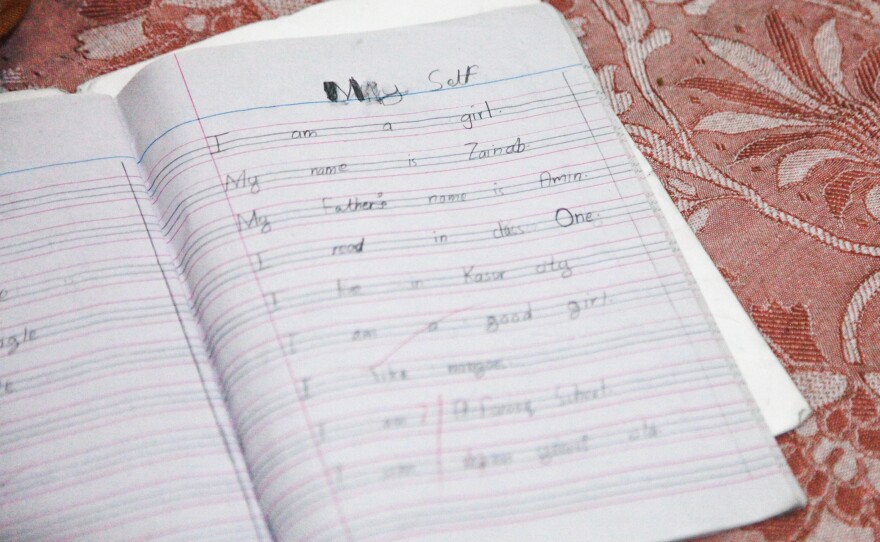 My Self
I am a girl.
My name is Zainab.
My Father's name is Amin.
I read in class One.
I live in Kasur city
I am a good girl.
I like mangoe.
I am School.
I am